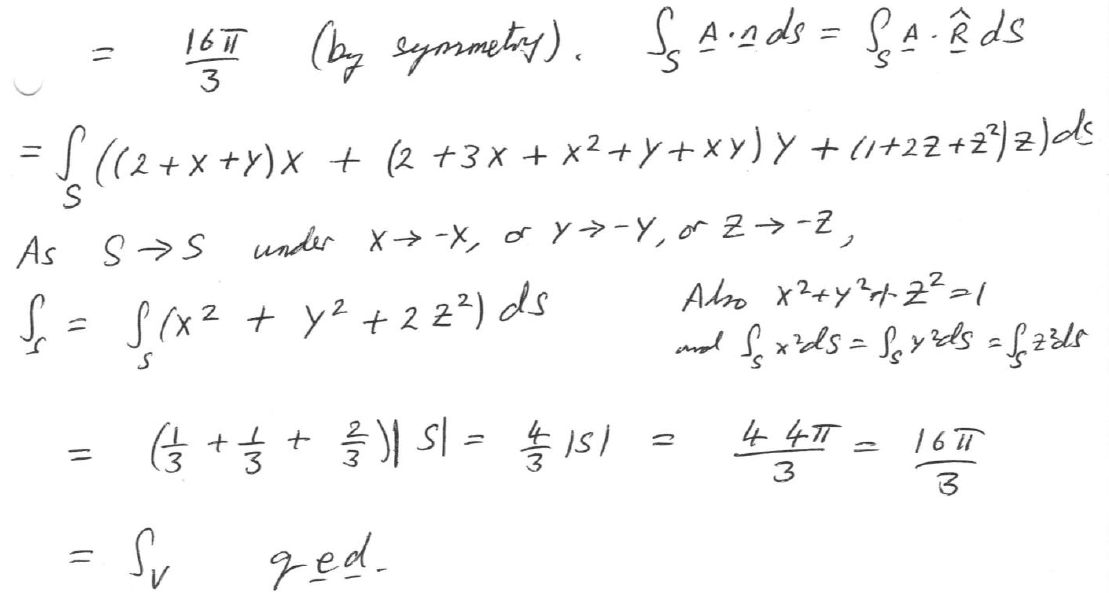 = 16π/3 (by symmetry). ∫_S A̲·n̲ ds = ∫_S A̲·R̲̂ dS
= ∫_S ((2+x+y)x + (2+3x+x²+y+xy)y + (1+2z+z²)z) ds
As S→S under x→-x, or y→-y, or z→-z,
∫_S = ∫_S (x² + y² + 2z²) ds Also x²+y²+z²=1
and ∫_S x²ds = ∫_S y²ds = ∫_S z²ds
= (1/3 + 1/3 + 2/3)|S| = 4/3 |S| = 4 4π/3 = 16π/3
= ∫_V q e̲ d̲.